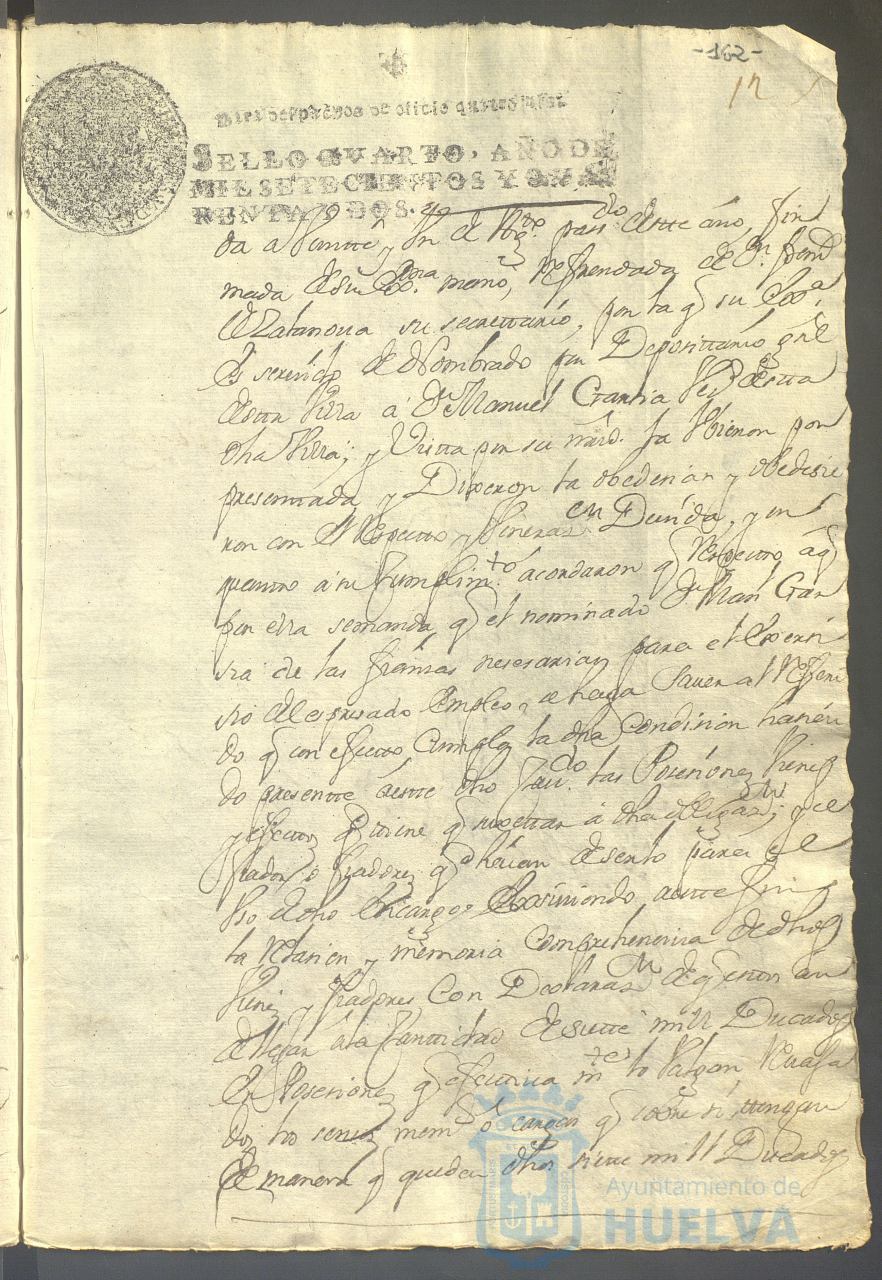 -162-
12
Para despachos de oficio quatro mrs
SELLO QVARTO, AÑO DE
MIL SETECIENTOS Y QVA
RENTA Y DOS.
da a Veintte y Un de pasdo deste año, fir
mada de su Exa. mano, Refrendada de Dn.
de Zalanova su secrettario, por la q su Exa.
Es servido de Nombrado por Deposittario gral
destta Villa á Dn Manuel Garsia Vez destta
dha Villa; y Vista por su mrd. la Vbieron por
presenttada y Dixeron la obedesian y obedesie
ron con el Respecto y Venerasn Devida, y en
quantto a su Cumplimto. acordaron q Respecto áq
por ella se manda q el nominado Dn Manl Gar
sia de las fiansas nesesarias para el Exerci
sio del expresado Empleo, se haga saver al Referi
do q con efecto Cumpla la dha Condision hasien
do presentte a estte dho las Posesiones Vienes
y efectos q tiene q sujettar á dha obligasn; y el
fiador, o fiadores q hasian desentto para el
Vso de dho Encargo Exsiviendo, a estte fin
la Relasion y memoria Comprehensiva de dhos
Vienes y fiadores Con Declarasn de q estos an
de llegar ala Canttidad de siette mill Ducados
En Posesiones q efectiva mte lo Valgan Revaxa
dos los sensos memo. ó cargas q sobre si tengan
de manera q queden dhos siette mill Ducados
Ayuntamiento de
HUELVA